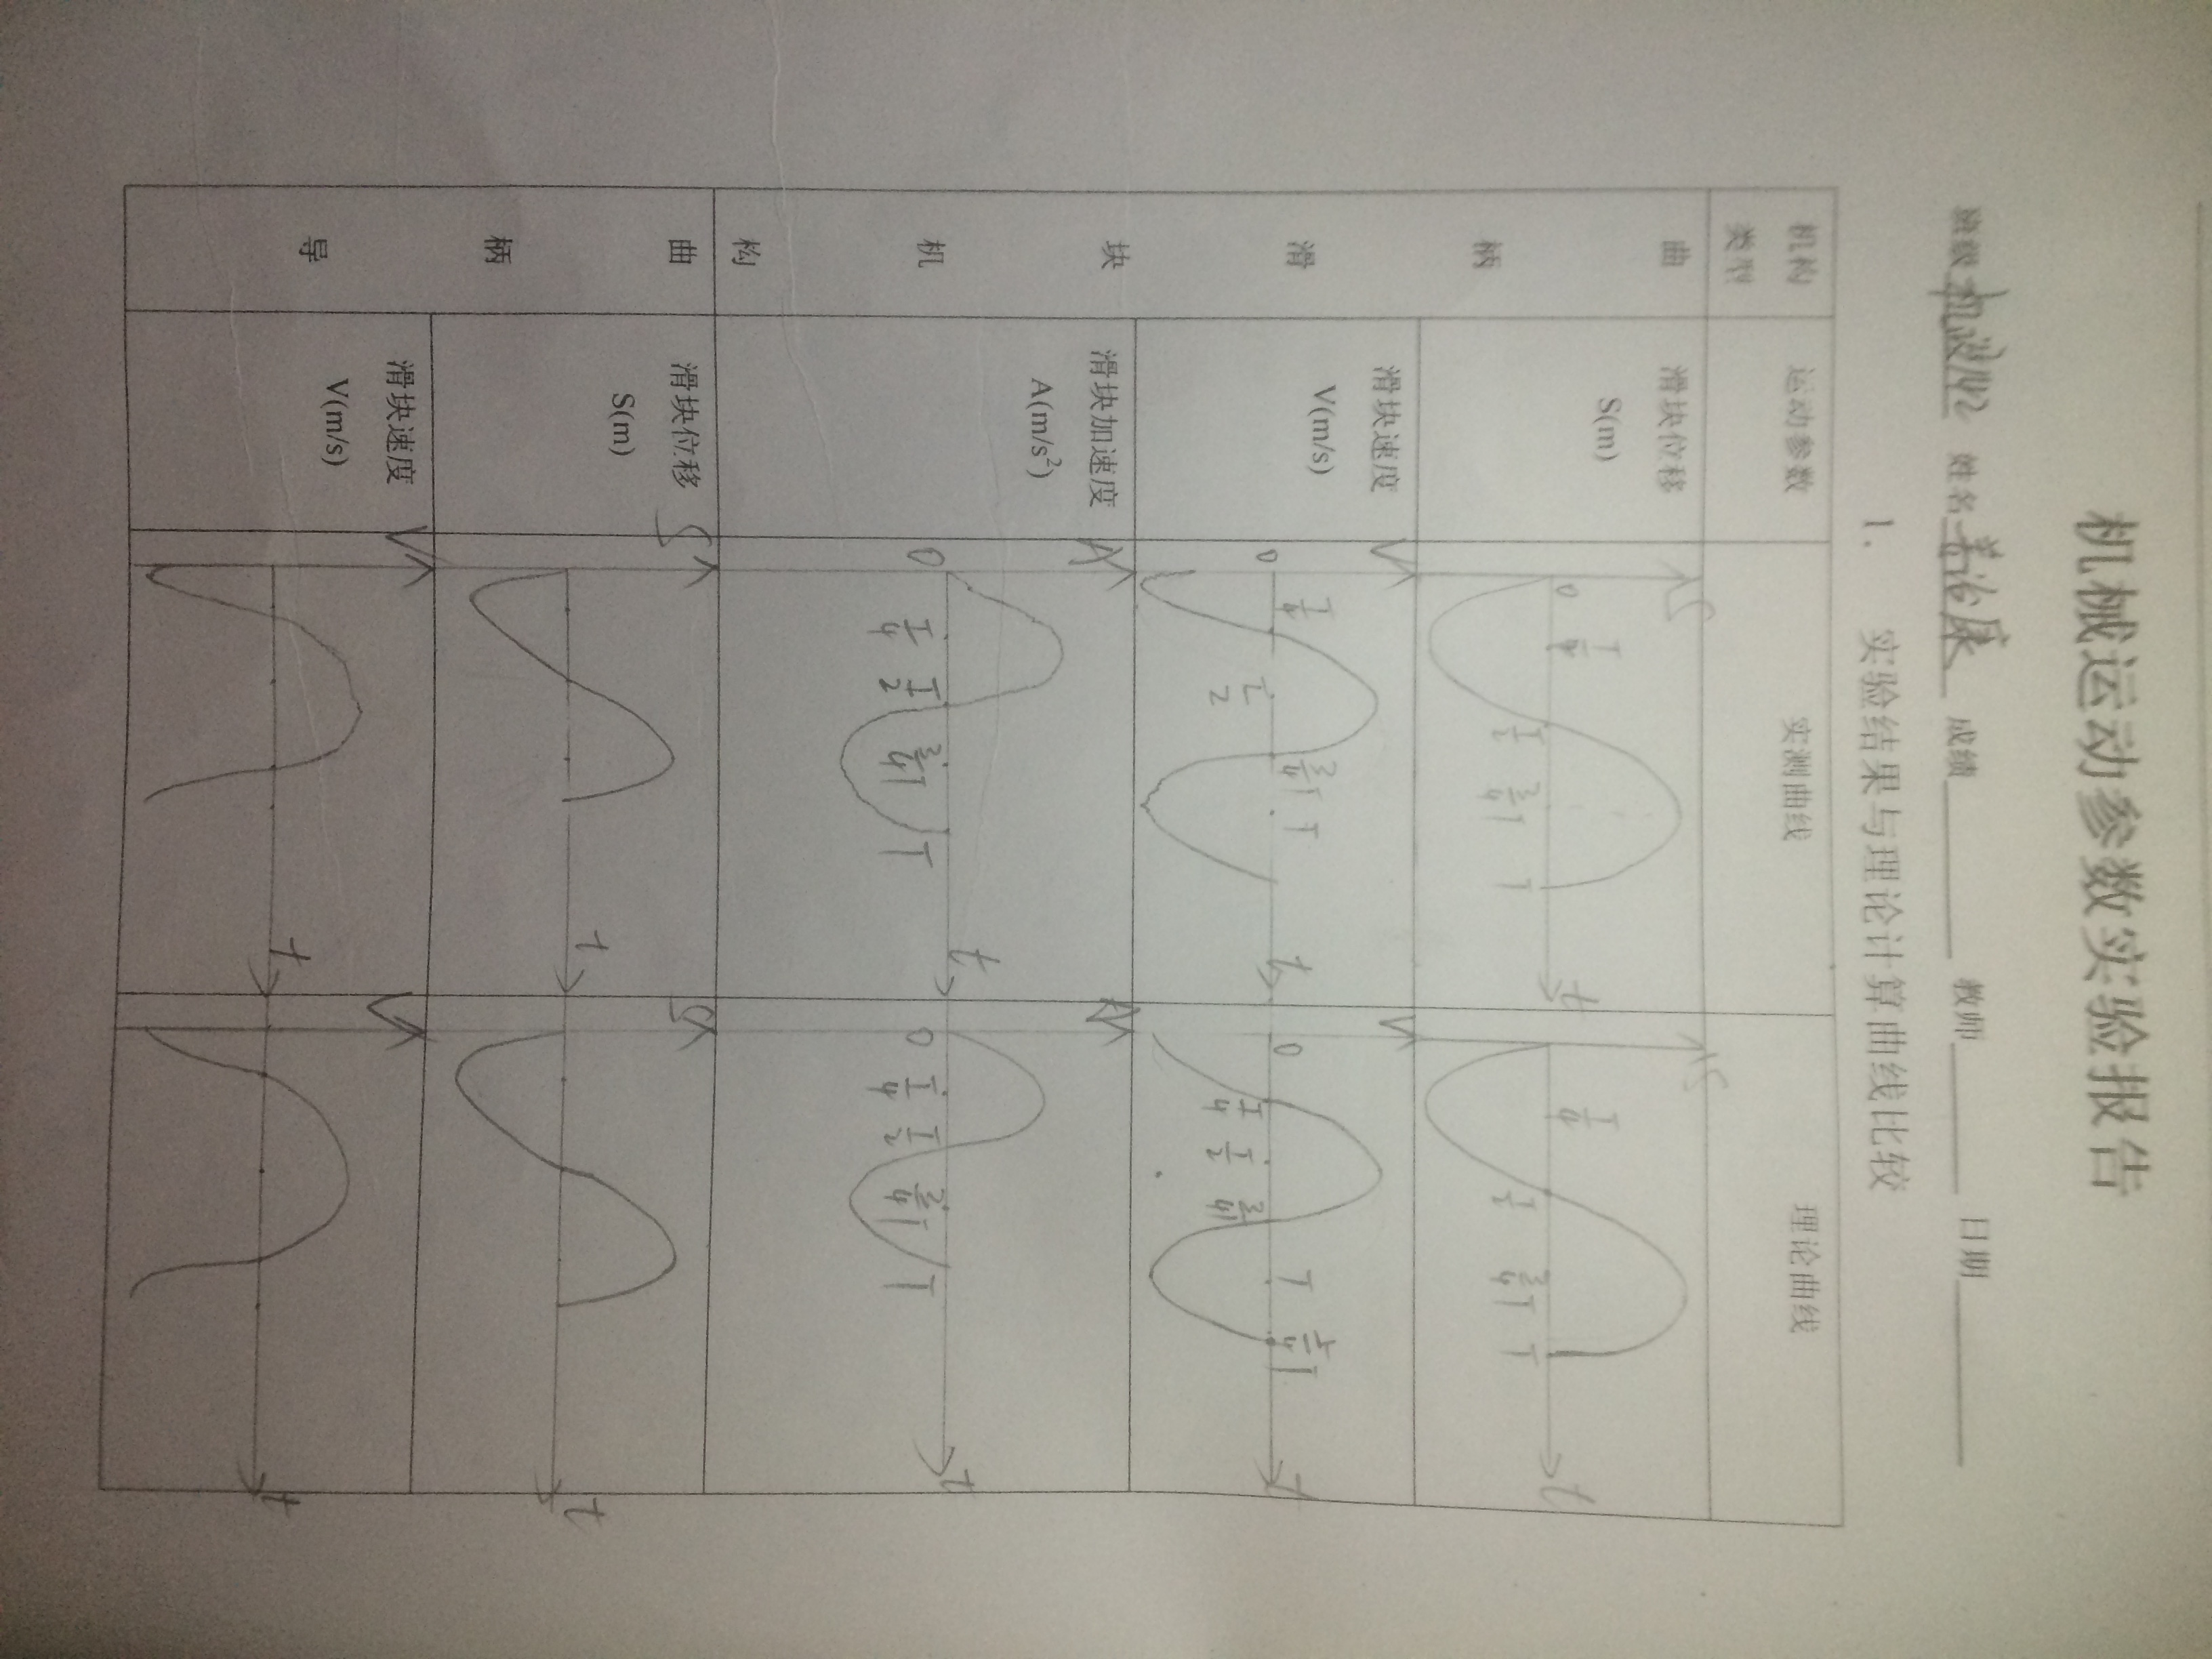 机械运动参数实验报告
班级 机液142 姓名 治康 成绩 教师 日期
1. 实验结果与理论计算曲线比较
机构类型 运动参数 实测曲线 理论曲线
曲柄滑块机构
滑块位移
S(m)
S 0 T/4 T/2 3/4T T t
S T/4 T/2 3/4T T t
滑块速度
V(m/s)
V 0 T/4 T/2 3/4T T t
V 0 T/4 T/2 3/4T T 5/4T t
滑块加速度
A(m/s²)
A 0 T/4 T/2 3/4T T t
A 0 T/4 T/2 3/4T T t
曲柄导
滑块位移
S(m)
S t
S t
滑块速度
V(m/s)
V t
V t